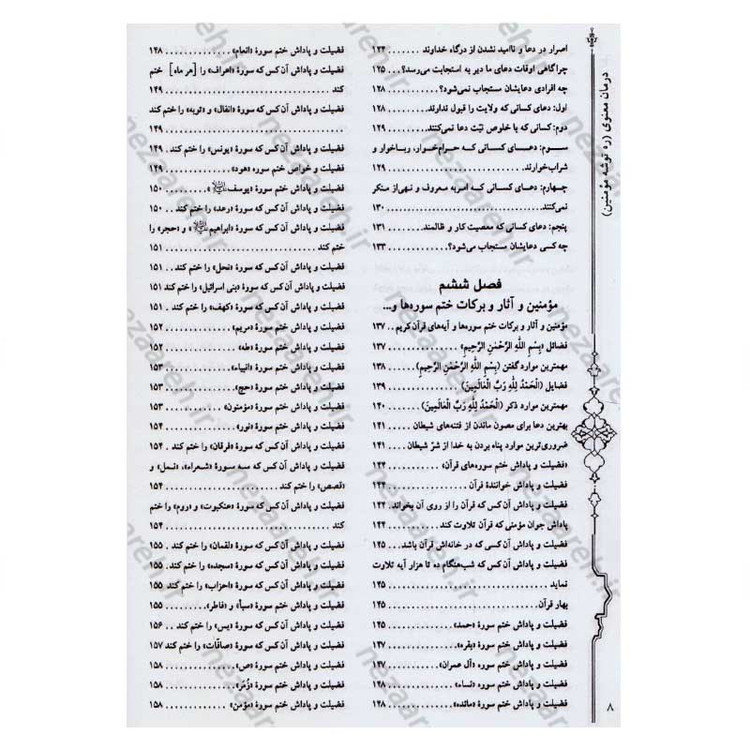 درمان معنوی (ره توشه مؤمنین)
اصرار در دعا و ناامید نشدن از درگاه خداوند ....... ۱۲۴
چرا گاهی اوقات دعای ما دیر به استجابت می‌رسد؟... ۱۲۵
چه افرادی دعایشان مستجاب نمی‌شود؟ ............ ۱۲۸
اول: دعای کسانی که ولایت را قبول ندارند......... ۱۲۸
دوم: کسانی که با خلوص نیّت دعا نمی‌کنند ......... ۱۲۹
ســوم: دعــای کسانی کــه حــرام‌خــوار، ربـاخوار و
شراب‌خوارند ................................. ۱۲۹
چهارم: دعای کسانی کـه امـربه مـعروف و نـهی‌از مـنکر
نمی‌کنند .................................... ۱۳۰
پنجم: دعای کسانی که معصیت کار و ظالمند ........ ۱۳۱
چه کسی دعایشان مستجاب می‌شود؟ .............. ۱۳۳
فصل ششم
مؤمنین و آثار و برکات ختم سوره‌ها و...
مؤمنین و آثار و برکات ختم سوره‌ها و آیه‌های قرآن کریم.. ۱۳۷
فضائل (بِسْمِ اللّٰهِ الرَّحْمٰنِ الرَّحِیمِ) .................... ۱۳۷
مهمترین موارد گفتن (بِسْمِ اللّٰهِ الرَّحْمٰنِ الرَّحِیمِ) ....... ۱۳۸
فضایل (اَلْحَمْدُ لِلّٰهِ رَبِّ الْعَالَمِینَ) ................... ۱۳۹
مهمترین موارد ذکر (اَلْحَمْدُ لِلّٰهِ رَبِّ الْعَالَمِینَ) ......... ۱۴۰
بهترین دعا برای مصون ماندن از فتنه‌های شیطان ..... ۱۴۱
ضروری‌ترین موارد پناه بردن به خدا از شرّ شیطان ..... ۱۴۱
«فضیلت و پاداش ختم سوره‌های قرآن» ............. ۱۴۴
فضیلت و پاداش خوانندهٔ قرآن ................... ۱۴۴
فضیلت و پاداش آن کس که قرآن را از روی آن بخواند. ۱۴۴
پاداش جوان مؤمنی که قرآن تلاوت کند ............ ۱۴۴
فضیلت و پاداش آن کسی که در خانه‌اش قرآن باشد... ۱۴۵
فضیلت و پاداش آن کس که شب‌هنگام ده تا هزار آیه تلاوت
نماید ....................................... ۱۴۵
بهار قرآن.................................... ۱۴۵
فضیلت و پاداش ختم سورهٔ «حمد» ................ ۱۴۵
فضیلت و پاداش ختم سورهٔ «بقره»................. ۱۴۷
فضیلت و پاداش ختم سوره «آل عمران» ............ ۱۴۷
فضیلت و پاداش ختم سورهٔ «نساء»................. ۱۴۸
فضیلت و پاداش ختم سورهٔ «مائده» ............... ۱۴۸
فضیلت و پاداش ختم سورهٔ «انعام»................ ۱۴۸
فضیلت و پاداش آن کس که سورهٔ «اعراف» را [هر ماه] ختم
کند ........................................ ۱۴۹
فضیلت و پاداش آن کس که سورهٔ «انفال» و «توبه» را ختم کند
........................................... ۱۴۹
فضیلت و پاداش آن کس که سورهٔ «یونس» را ختم کند . ۱۴۹
فضیلت و خواص ختم سوره «هود» ................. ۱۴۹
فضیلت و پاداش ختم سورهٔ «یوسف ﷷ» ............ ۱۵۰
فضیلت و پاداش آن کس که سورهٔ «رعد» را ختم کند... ۱۵۰
فضیلت و پاداش آن کس که سورهٔ «ابراهیم ﷷ» و «حجر» را
ختم کند .................................... ۱۵۱
فضیلت و پاداش آن کس که سورهٔ «نحل» را ختم کند... ۱۵۱
فضیلت و پاداش آن کس که سورهٔ «بنی اسرائیل» را ختم کند ۱۵۱
فضیلت و پاداش آن کس که سورهٔ «کهف» را ختم کند . ۱۵۱
فضیلت و پاداش ختم سورهٔ «مریم»................. ۱۵۲
فضیلت و پاداش ختم سورهٔ «طه».................. ۱۵۲
فضیلت و پاداش ختم سورهٔ «انبیاء»................ ۱۵۳
فضیلت و پاداش ختم سورهٔ «حج».................. ۱۵۳
فضیلت و پاداش ختم سورهٔ «مؤمنون» .............. ۱۵۳
فضیلت و پاداش ختم سورهٔ «نور».................. ۱۵۴
فضیلت و پاداش آن کس که سورهٔ «فرقان» را ختم کند . ۱۵۴
فضیلت و پاداش آن کس که سه سـورهٔ «شـعراء»، «نـمل» و
«قصص» را ختم کند ........................... ۱۵۴
فضیلت و پاداش آن کس که سورهٔ «عنکبوت» و «روم» را ختم
کند ........................................ ۱۵۴
فضیلت و پاداش آن کس که سورهٔ «لقمان» را ختم کند . ۱۵۵
فضیلت و پاداش آن کس که سورهٔ «سجده» را ختم کند. ۱۵۵
فضیلت و پاداش آن کس که سورهٔ «احزاب» را ختم کند ۱۵۵
فضیلت و پاداش ختم سورهٔ «سبأ» و «فاطر»......... ۱۵۵
فضیلت و پاداش آن کس که سورهٔ «یس» را ختم کند .. ۱۵۶
فضیلت و پاداش آن کس که سورهٔ «صافّات» را ختم کند ۱۵۷
فضیلت و پاداش ختم سورهٔ «ص» .................. ۱۵۸
فضیلت و پاداش ختم سورهٔ «زُمَر»................. ۱۵۸
فضیلت و پاداش ختم سورهٔ «مؤمن» ............... ۱۵۸
۸
nezaareh.ir